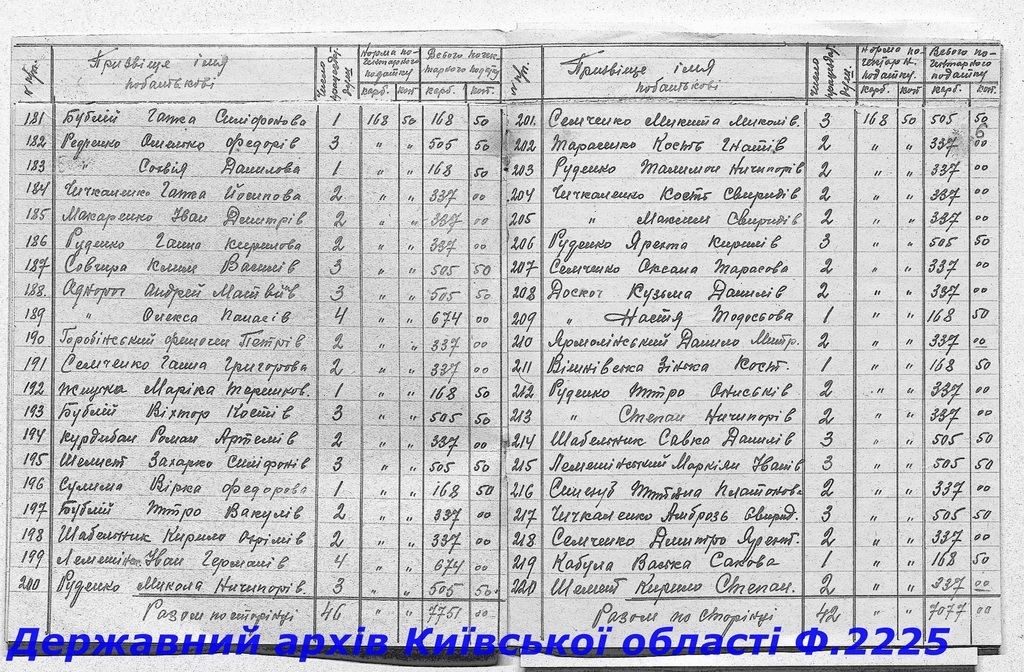 № №/р. Прізвіще імя побатькові Число працездат. душ. Норма поч. гектарного податку карб. коп Всього погектарного податку карб. коп.
181 Бублій Гапка Симіфонова 1 168 50 168 50
182 Руденко Омелько Федорів 3 " " 505 50
183 " Софія Данилова 1 " " 168 50
184 Чичкаленко Гапка Йосипова 2 " " 337 00
185 Макаренко Іван Дмитрів 2 " " 337 00
186 Руденко Ганна Кирилова 2 " " 337 00
187 Совчира Клим Василів 3 " " 505 50
188. Однорог Андрей Матвіїв 3 " " 505 50
189 " Олекса Панасів 4 " " 674 00
190 Петрів 2 " " 337 00
191 Семченко Ганна Григорова 2 " " 337 00
192 Жмутка Маріка 1 " " 168 50
193 Бублій Віктор Костів 3 " " 505 50
194 Курдибан Роман Артемів 2 " " 337 00
195 Шелест Захарко Симіфонів 3 " " 505 50
196 Сулима Вірка Федорова 1 " " 168 50
197 Бублій Петро Вакулів 2 " " 337 00
198 Шабельник Кирило Юхимів 2 " " 337 00
199 Іван Германів 4 " " 674 00
200 Руденко Микола Ничипорів 3 505 50
Разом по сторінці 46 " " 7751 00
№ №/р. Прізвіще імя побатькові Число працездат. душ. Норма погектарн. податку. карб. коп Всього погектарного податку карб. коп.
201. Семченко Микита Миколів. 3 168 50 505 50
202 Тарасенко Кость Гнатів 2 " " 337 00
203 Руденко Талимон Ничипорів 2 " " 337 00
204 Чичкаленко Кость Свиридів 2 " " 337 00
205 " Максим Свиридів 2 " " 337 00
206 Руденко Ярема Кирилів 3 " " 505 50
207 Семченко Оксана Тарасова 2 " " 337 00
208 Доскоч Кузьма Данилів 2 " " 337 00
209 " Настя Тодосьова 1 " " 168 50
210 Ярмолінський Данило Митр. 2 " " 337 00
211 Вішнівська Зінька Кост. 1 " " 168 50
212 Руденко Петро Ониськів 2 " " 337 00
213 " Степан Ничипорів 2 " " 337 00
214 Шабельник Савка Данилів 3 " " 505 50
215 Лемешінський Маркіян Іванів 3 " " 505 50
216 Тетяна Платонова 2 " " 337 00
217 Чичкаленко Амброзь Свирид. 3 " " 505 50
218 Семченко Дмитро Ярем. 2 " " 337 00
219 Кабула Васька Савова 1 " " 168 50
220 Шелест Кирило Степан. 2 " " 337 00
Разом по сторінці 42 " " 7077 00
Державний архів Київської області Ф.2225